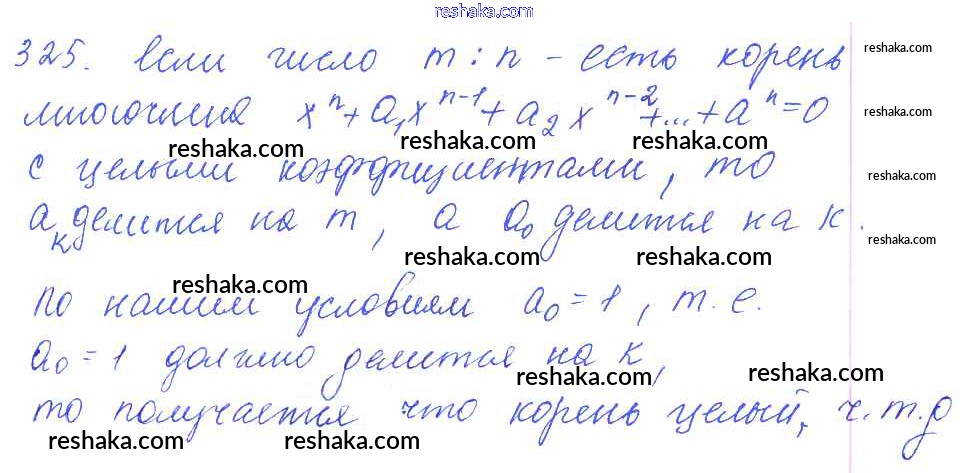 reshaka.com
325. Если число m : n - есть корень
reshaka.com
многочлена xⁿ + a₁xⁿ⁻¹ + a₂xⁿ⁻² + ... + aⁿ = 0
reshaka.com
reshaka.com reshaka.com reshaka.com
с целыми коэффициентами, то
reshaka.com
aₖ делится на m, а a₀ делится на к.
reshaka.com
reshaka.com reshaka.com reshaka.com
По нашим условиям a₀ = 1, т. е.
a₀ = 1 должно делится на к,
reshaka.com reshaka.com
то получается что корень целый, ч.т.д
reshaka.com reshaka.com